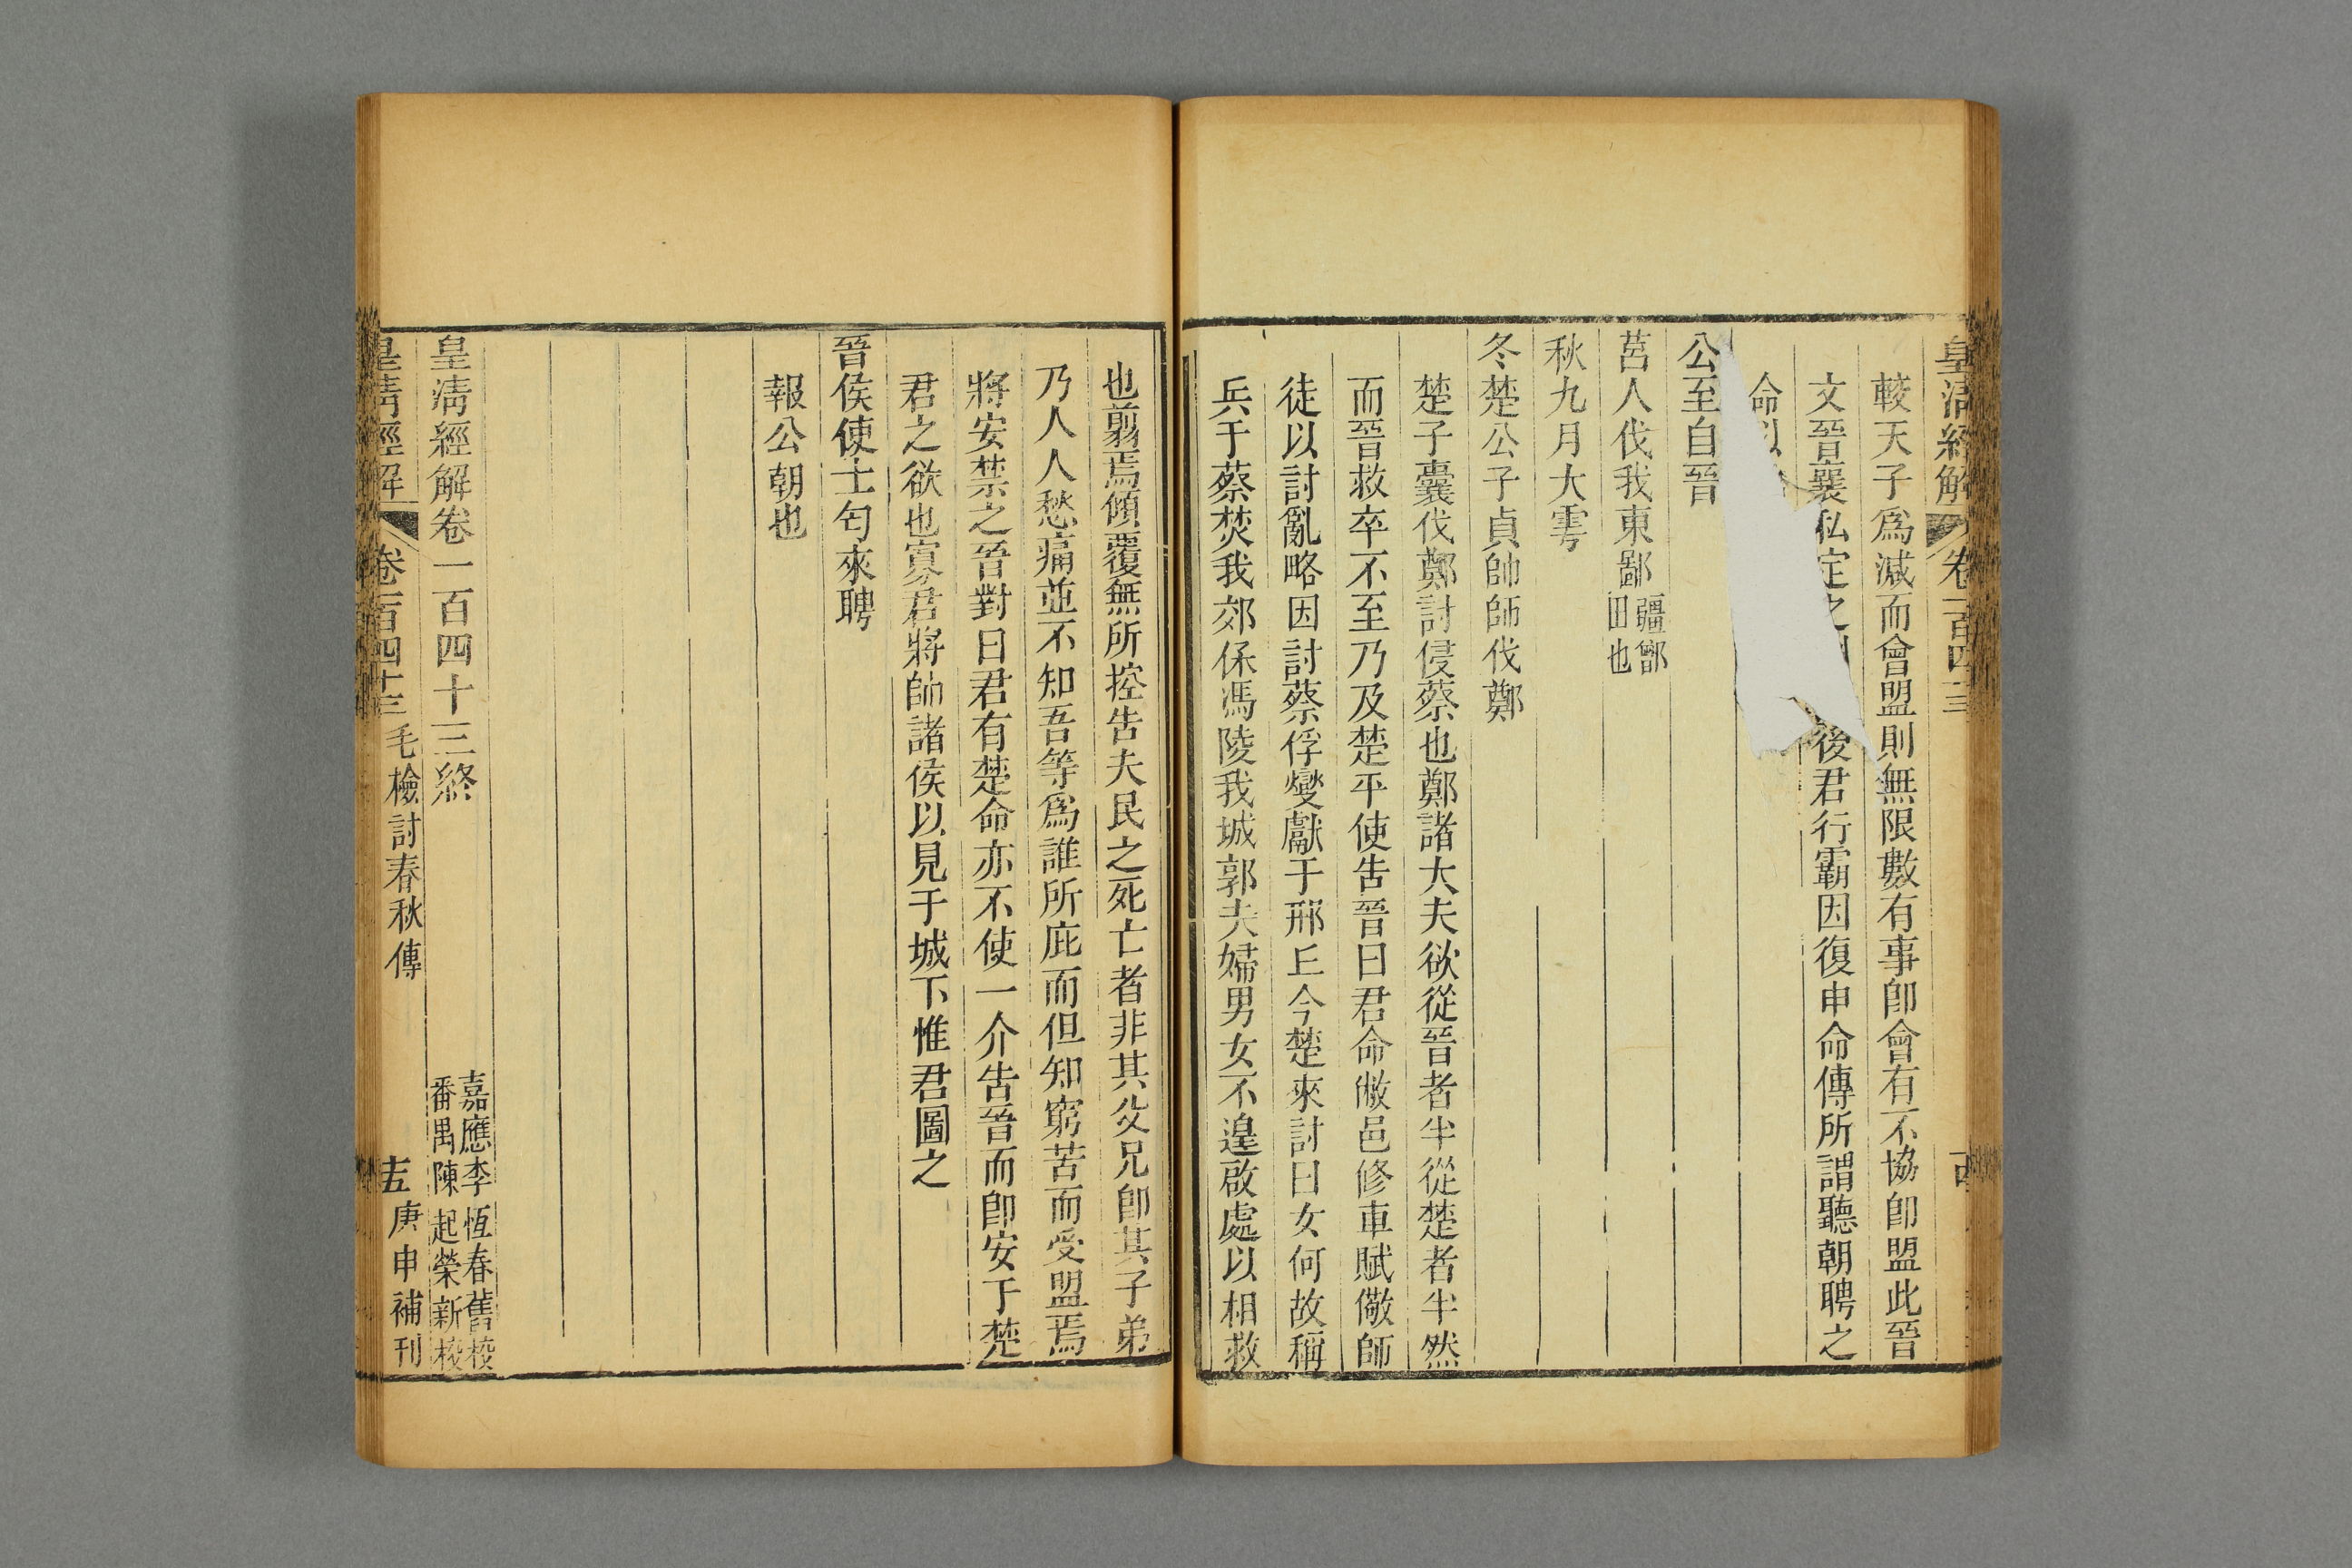 皇清經解 卷一百四十三
較天子爲減而會盟則無限數有事卽會有不協卽盟此晉
文晉襄私定之後君行霸因復申命傳所謂聽朝聘之
命
公至自晉
莒人伐我東鄙疆鄫田也
秋九月大雩
冬楚公子貞帥師伐鄭
楚子囊伐鄭討侵蔡也鄭諸大夫欲從晉者半從楚者半然
而晉救卒不至乃及楚平使吿晉曰君命敝邑修車賦儆師
徒以討亂略因討蔡俘燮獻于邢丘今楚來討曰女何故稱
兵于蔡焚我郊保馮陵我城郭夫婦男女不遑啟處以相救
也翦焉傾覆無所控吿夫民之死亡者非其父兄卽其子弟
乃人人愁痛並不知吾等爲誰所庇而但知窮苦而受盟焉
將安禁之晉對曰君有楚命亦不使一介吿晉而卽安于楚
君之欲也寡君將帥諸侯以見于城下惟君圖之
晉侯使士匄來聘
報公朝也
皇清經解卷一百四十三終
嘉應李恆春舊校
番禺陳起榮新校
皇清經解 卷一百四十三 毛檢討春秋傳 庚申補刊